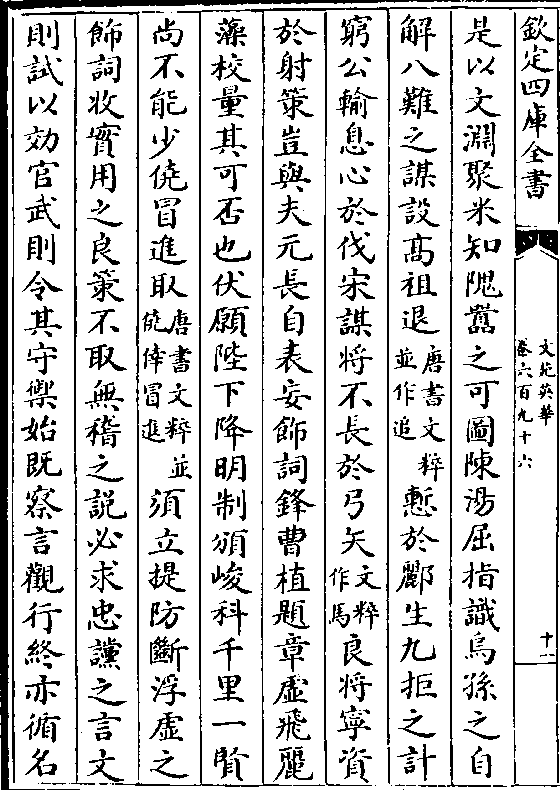 欽定四庫全書
文苑英華
卷六百九十六
十一
是以文淵聚米知隗囂之可圖陳湯屈指識烏孫之自
解八難之謀設高祖退唐書文粹並作追慙於酈生九拒之計
窮公輸息心於伐宋謀將不長於弓矢文粹作馬良將寧資
於射策豈與夫元長自表妄飾詞鋒曹植題章虛飛麗
藻校量其可否也伏願陛下降明制頒峻科千里一賢
尚不能少僥冒進取唐書文粹並僥倖冒進須立提防斷浮虛之
飾詞收實用之良策不取無稽之説必求忠讜之言文
則試以効官武則令其守禦始既察言觀行終亦循名